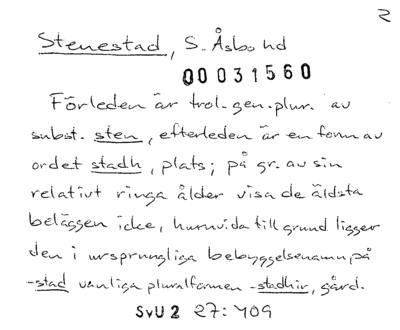 2
Stenestad, S. Åsbo hd
00031560
Förleden är trol. gen. plur. av
subst. sten, efterleden är en form av
ordet stadh, plats; på gr. av sin
relativt ringa ålder visa de äldsta
beläggen icke, huruvida till grund ligger
den i ursprungliga bebyggelsenamn på
-stad vanliga pluralformen -stadhir, gård.
SvU 2 27: 409